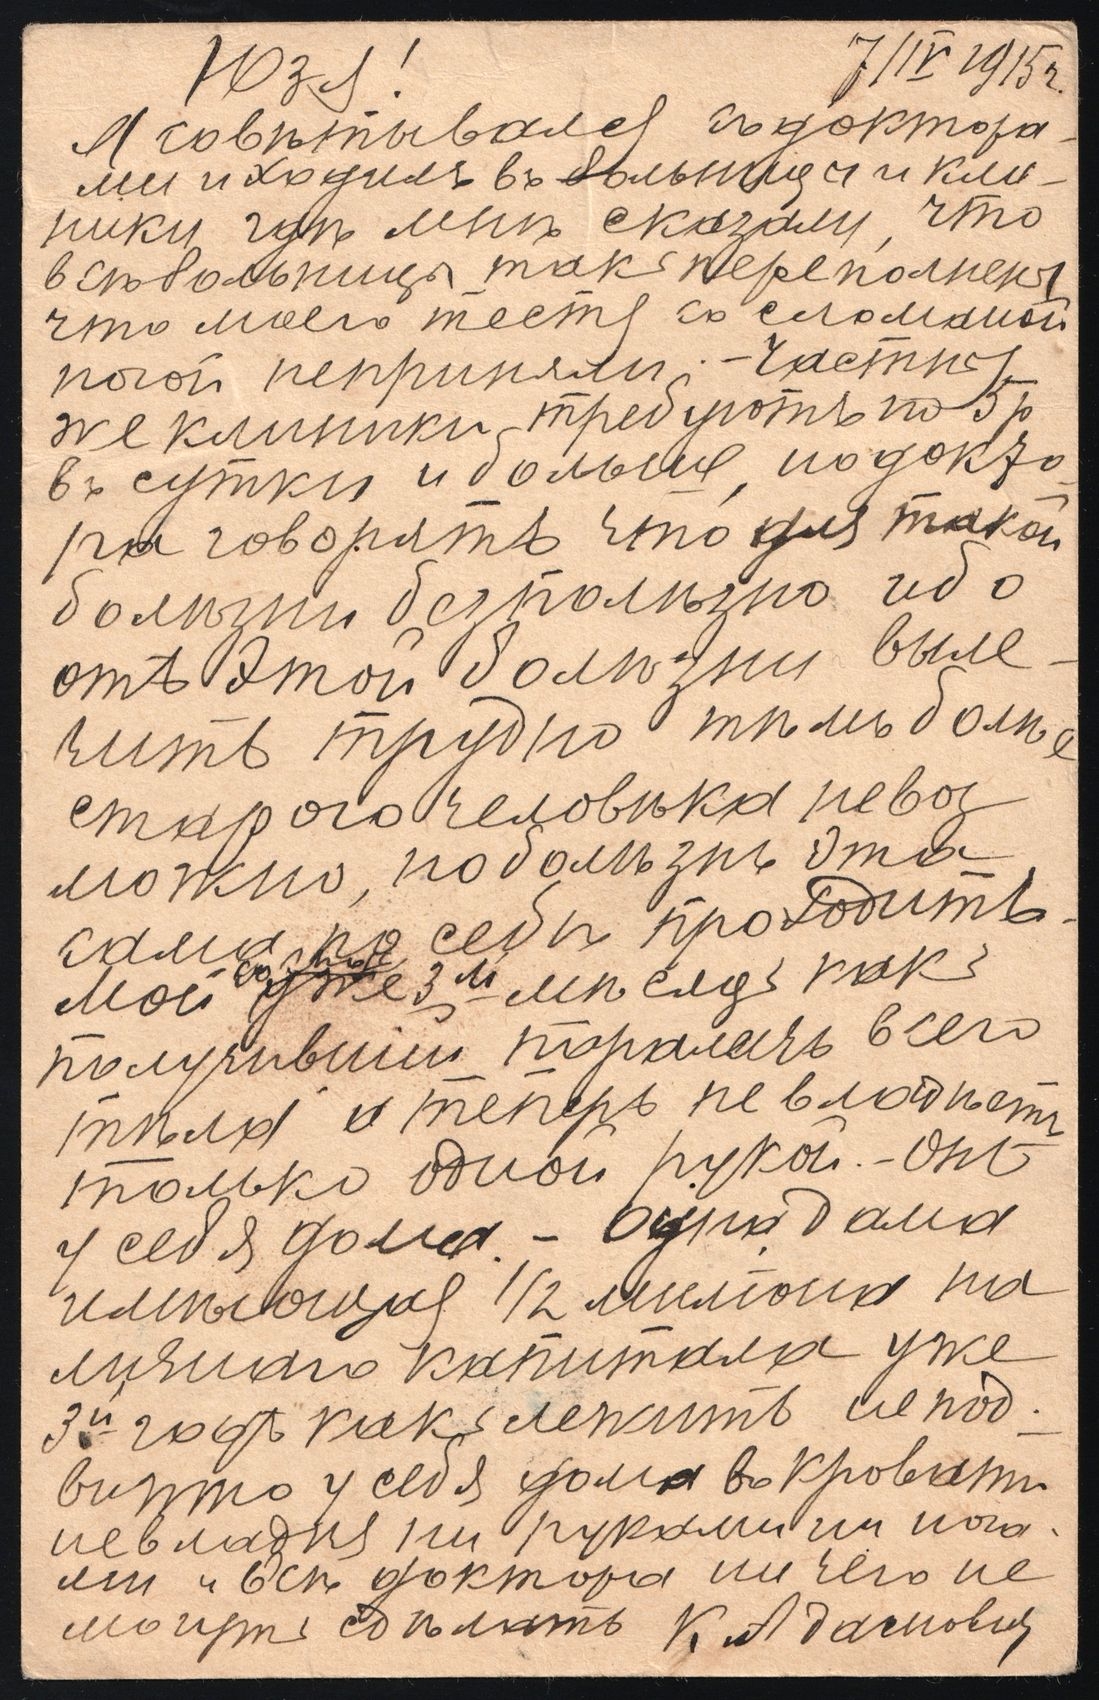 Юзя! 7/IV 1915 г.
Я совѣтывался съ доктора-
ми и ходилъ въ больницы и кли-
ники гдѣ мнѣ сказали, что
всѣ больницы такъ переполнены
что моего тестя со сломаной
ногой неприняли. – Частныя
же клиники требуютъ по 5 р
въ сутки и больше, но докто-
ра говорятъ что для такой
болѣзни безполѣзно ибо
отъ этой болѣзни выле-
чить трудно тѣмъ болѣе
старого человѣка невоз
можно, но болѣзнь эта
сама по себѣ проходитъ.
мой уже 3й мѣсяцъ какъ
получивший параличъ всего
тѣла и теперь не владѣетъ
только одной рукой. – Онъ
у себя дома. – Одна дама
имѣющая 1/2 милiона на
личнаго капитала уже
3й годъ какъ лежитъ непод-
вижно у себя дома въ кровати
невладѣя ни руками ни нога-
ми и всѣ доктора ничего не
могутъ сдѣлать К. Адамовичъ